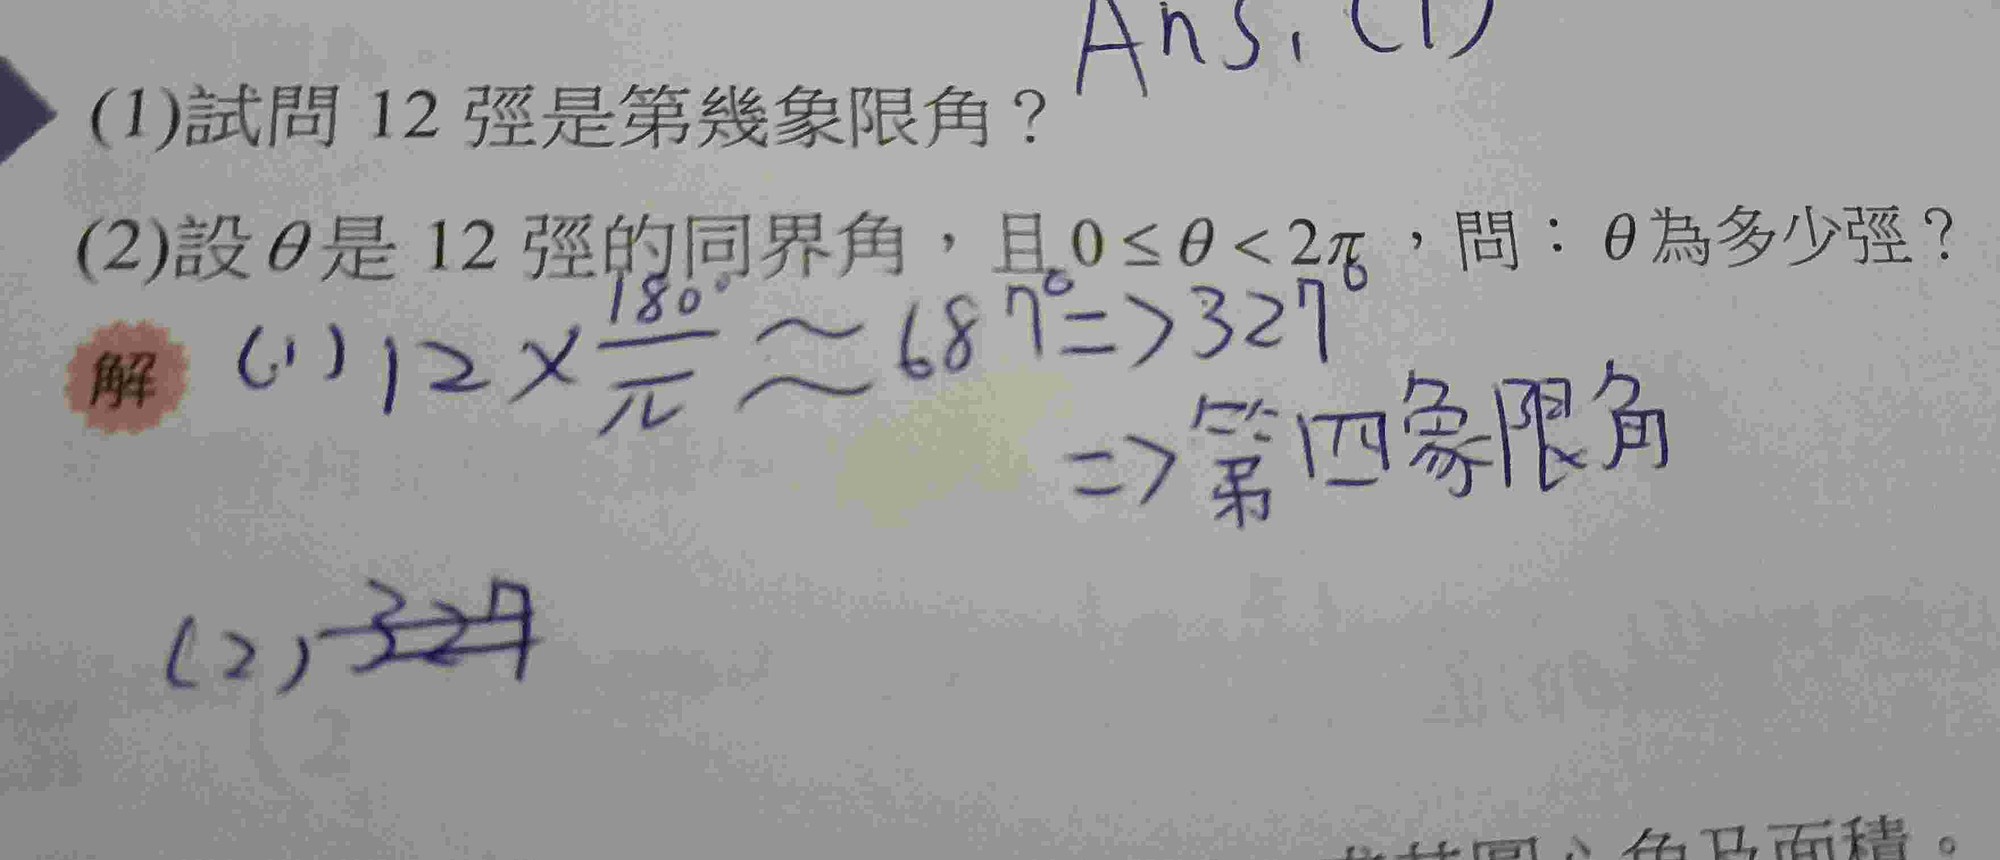 Ans, (1)
(1)試問 12 弳是第幾象限角？
(2)設θ是 12 弳的同界角，且 0≤θ<2π，問：θ為多少弳？
解 (1) 12×180°/π ≈ 687° => 327°
=> 第四象限角
(2) 327
角及面積。